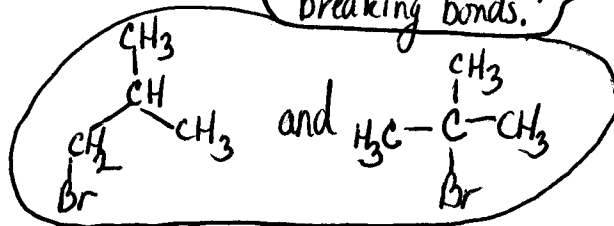 breaking bonds.
CH3
CH
CH2
CH3
Br
and
CH3
H3C-C-CH3
Br